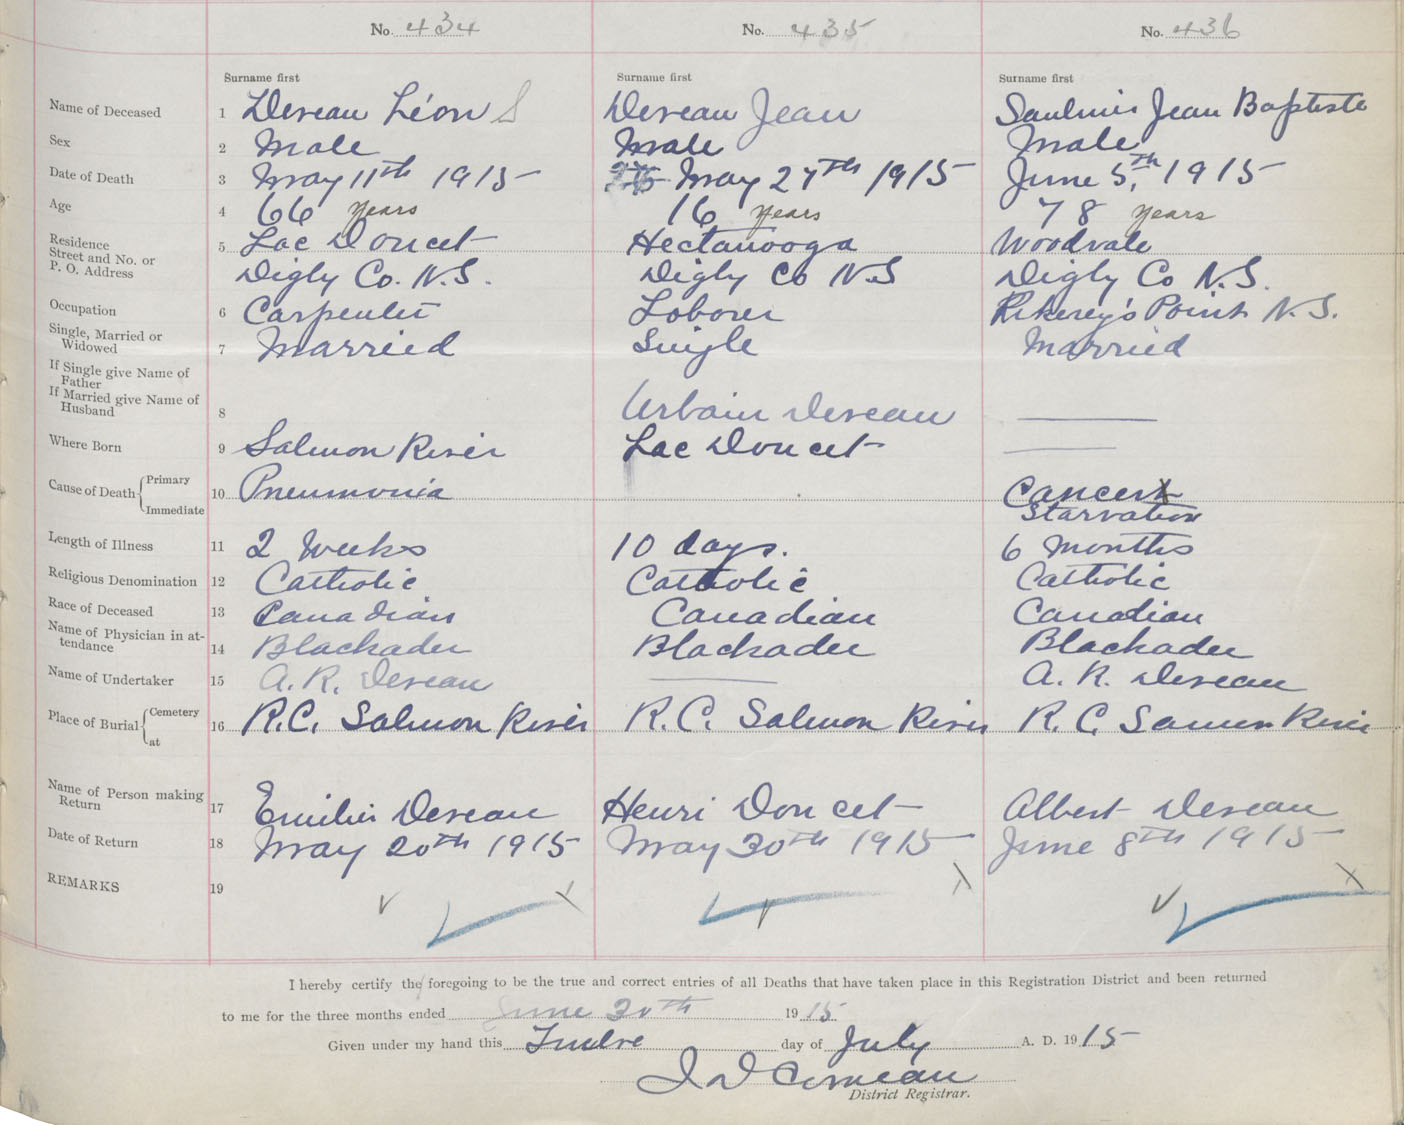 No. 434 No. 435 No. 436
Surname first Surname first Surname first
Name of Deceased 1 Deveau Léon S Deveau Jean Saulnier Jean Baptiste
Sex 2 Male Male Male
Date of Death 3 May 11th 1915 May 27th 1915 June 5th, 1915
Age 4 66 years 16 years 78 years
Residence 5 Lac Doucet Hectanooga Woodvale
Street and No. or
P. O. Address Digby Co. N.S. Digby Co N.S Digby Co N.S.
Occupation 6 Carpenter Laborer Point N.S.
Single, Married or
Widowed 7 Married Single Married
If Single give Name of
Father
If Married give Name of
Husband 8 Urbain Deveau
Where Born 9 Salmon River Lac Doucet
Cause of Death Primary
10 Pneumonia Cancer
Immediate Starvation
Length of Illness 11 2 Weeks 10 days. 6 Months
Religious Denomination 12 Catholic Catholic Catholic
Race of Deceased 13 Canadian Canadian Canadian
Name of Physician in at-
tendance 14 Blackader Blackader Blackader
Name of Undertaker 15 A. R. Deveau A. R. Deveau
Place of Burial Cemetery
at 16 R.C. Salmon River R.C. Salmon River R.C. Samon River
Name of Person making
Return 17 Emilie Deveau Henri Doucet Albert Deveau
Date of Return 18 May 20th 1915 May 30th 1915 June 8th 1915
REMARKS 19
I hereby certify the foregoing to be the true and correct entries of all Deaths that have taken place in this Registration District and been returned
to me for the three months ended June 30th 1915
Given under my hand this Twelve day of July A. D. 1915
Comeau
District Registrar.